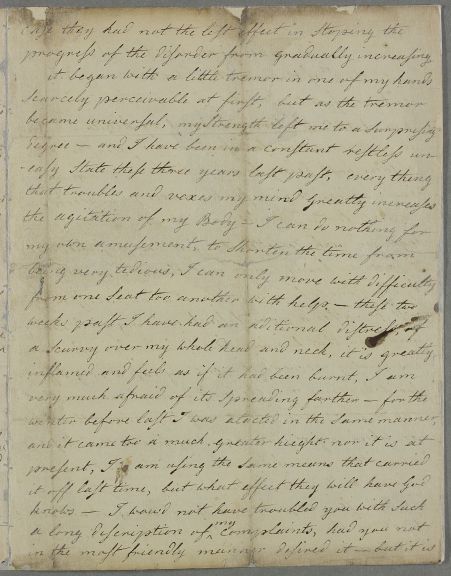 Case they had not the lest effect in stoping the
progress of the disorder from gradually increasing,
it began with a little tremor in one of my hands
scarcely perceivable at first, but as the tremor
became universal, my strength left me to a surprising
degree – and I have been in a constant restless un-
easy State these three years last past, every thing
that troubles and vexes my mind greatly increases
the agitation of my Body – I can do nothing for
my own amusement, to shorten the time from
being very tedious, I can only move with difficulty
from one Seat too another with help, – these two
weeks past I have had an aditional distress, of
a scurvy over my whole head and neck, it is greatly
inflamed and feels as if it had been burnt, I am
very much afraid of its spreading farther – for the
winter before last I was atacted in the same manner,
and it came too a much greater hieght nor it is at
present, I am using the same means that carried
it off last time, but what effect they will have God
knows – I wou'd not have troubled you with such
a long discription of my complaints, had you not
in the most friendly manner desired it – but it is